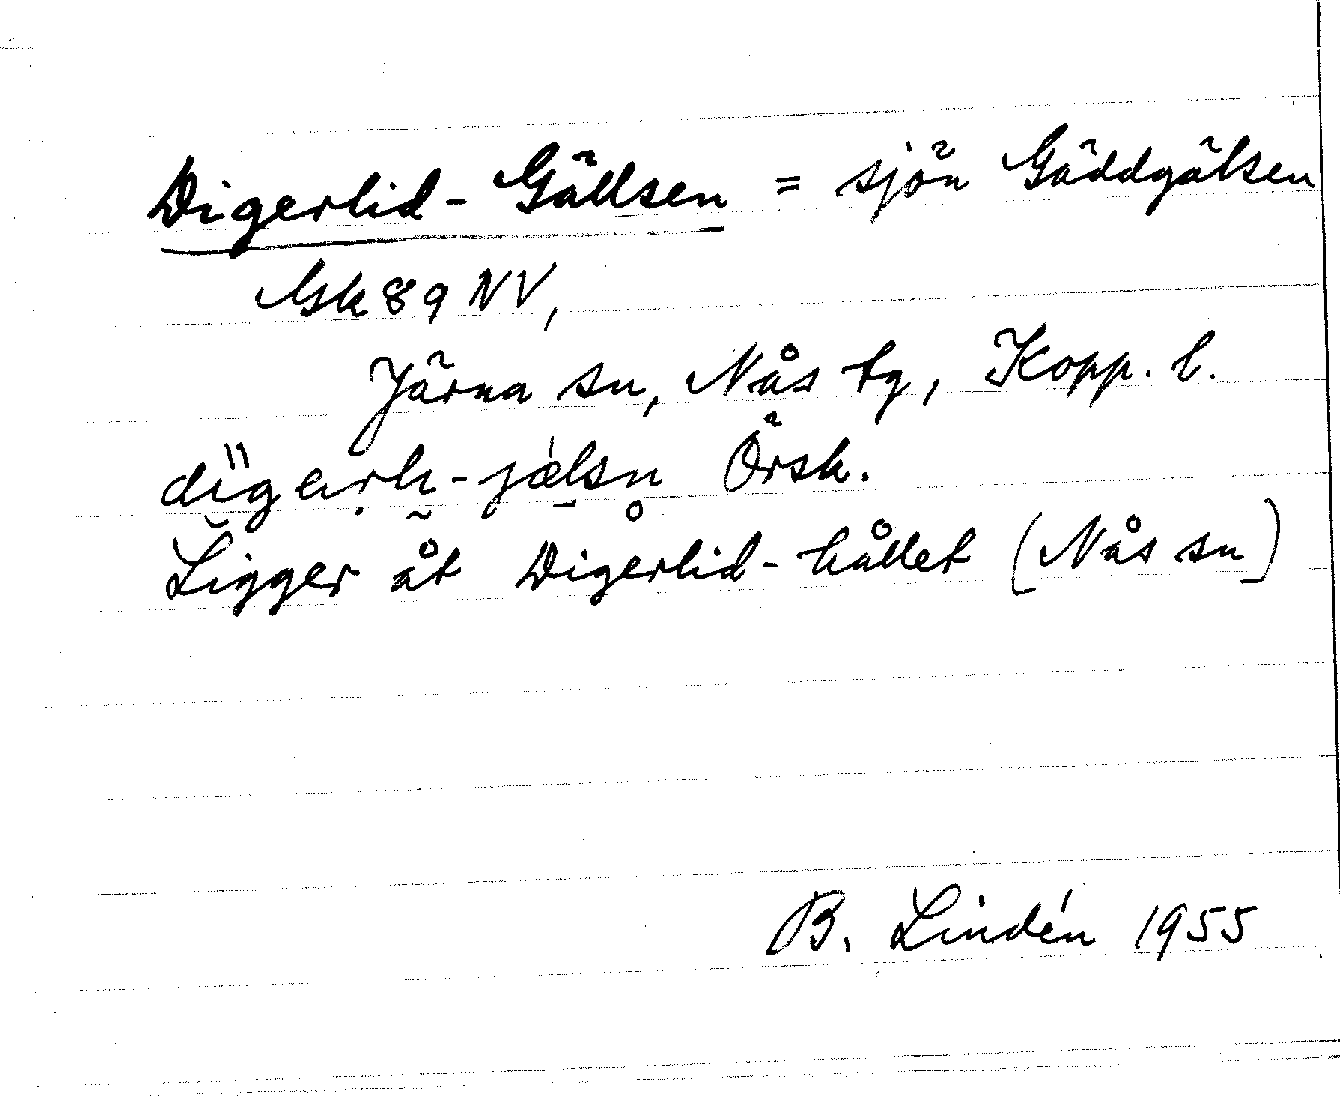 Digerlid-Gällsen = sjön Gäddgälsen
Gsk 89 NV,
Järna sn, Nås tg, Kopp. l.
Örsk.
Ligger åt Digerlid-hållet (Nås sn)
B. Lindén 1955